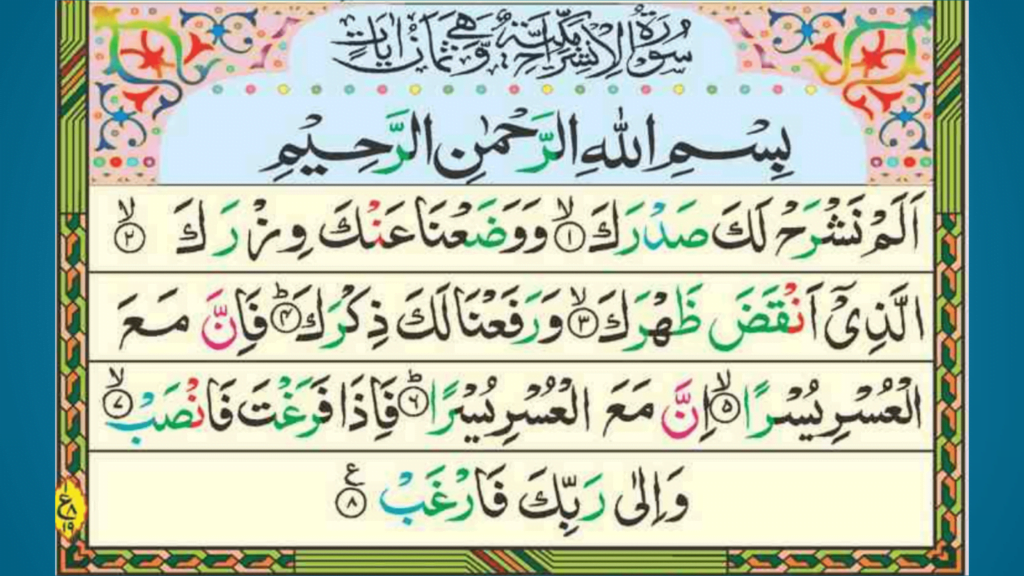 سُوْرَةُ الْاِنْشِرَاحِ مَكِّيَّةٌ وَّهِيَ ثَمَانُ اٰيَاتٍ
بِسْمِ اللّٰهِ الرَّحْمٰنِ الرَّحِيْمِ
اَلَمْ نَشْرَحْ لَكَ صَدْرَكَ ۙ﴿۱﴾ وَوَضَعْنَا عَنْكَ وِزْرَكَ ۙ﴿۲﴾
الَّذِیْۤ اَنْقَضَ ظَهْرَكَ ۙ﴿۳﴾ وَرَفَعْنَا لَكَ ذِكْرَكَ ؕ﴿۴﴾ فَاِنَّ مَعَ
الْعُسْرِ يُسْرًا ۙ﴿۵﴾ اِنَّ مَعَ الْعُسْرِ يُسْرًا ؕ﴿۶﴾ فَاِذَا فَرَغْتَ فَانْصَبْ ۙ﴿۷﴾
وَاِلٰى رَبِّكَ فَارْغَبْ ﴿۸﴾ ع
۱
ع ۸
۱۹